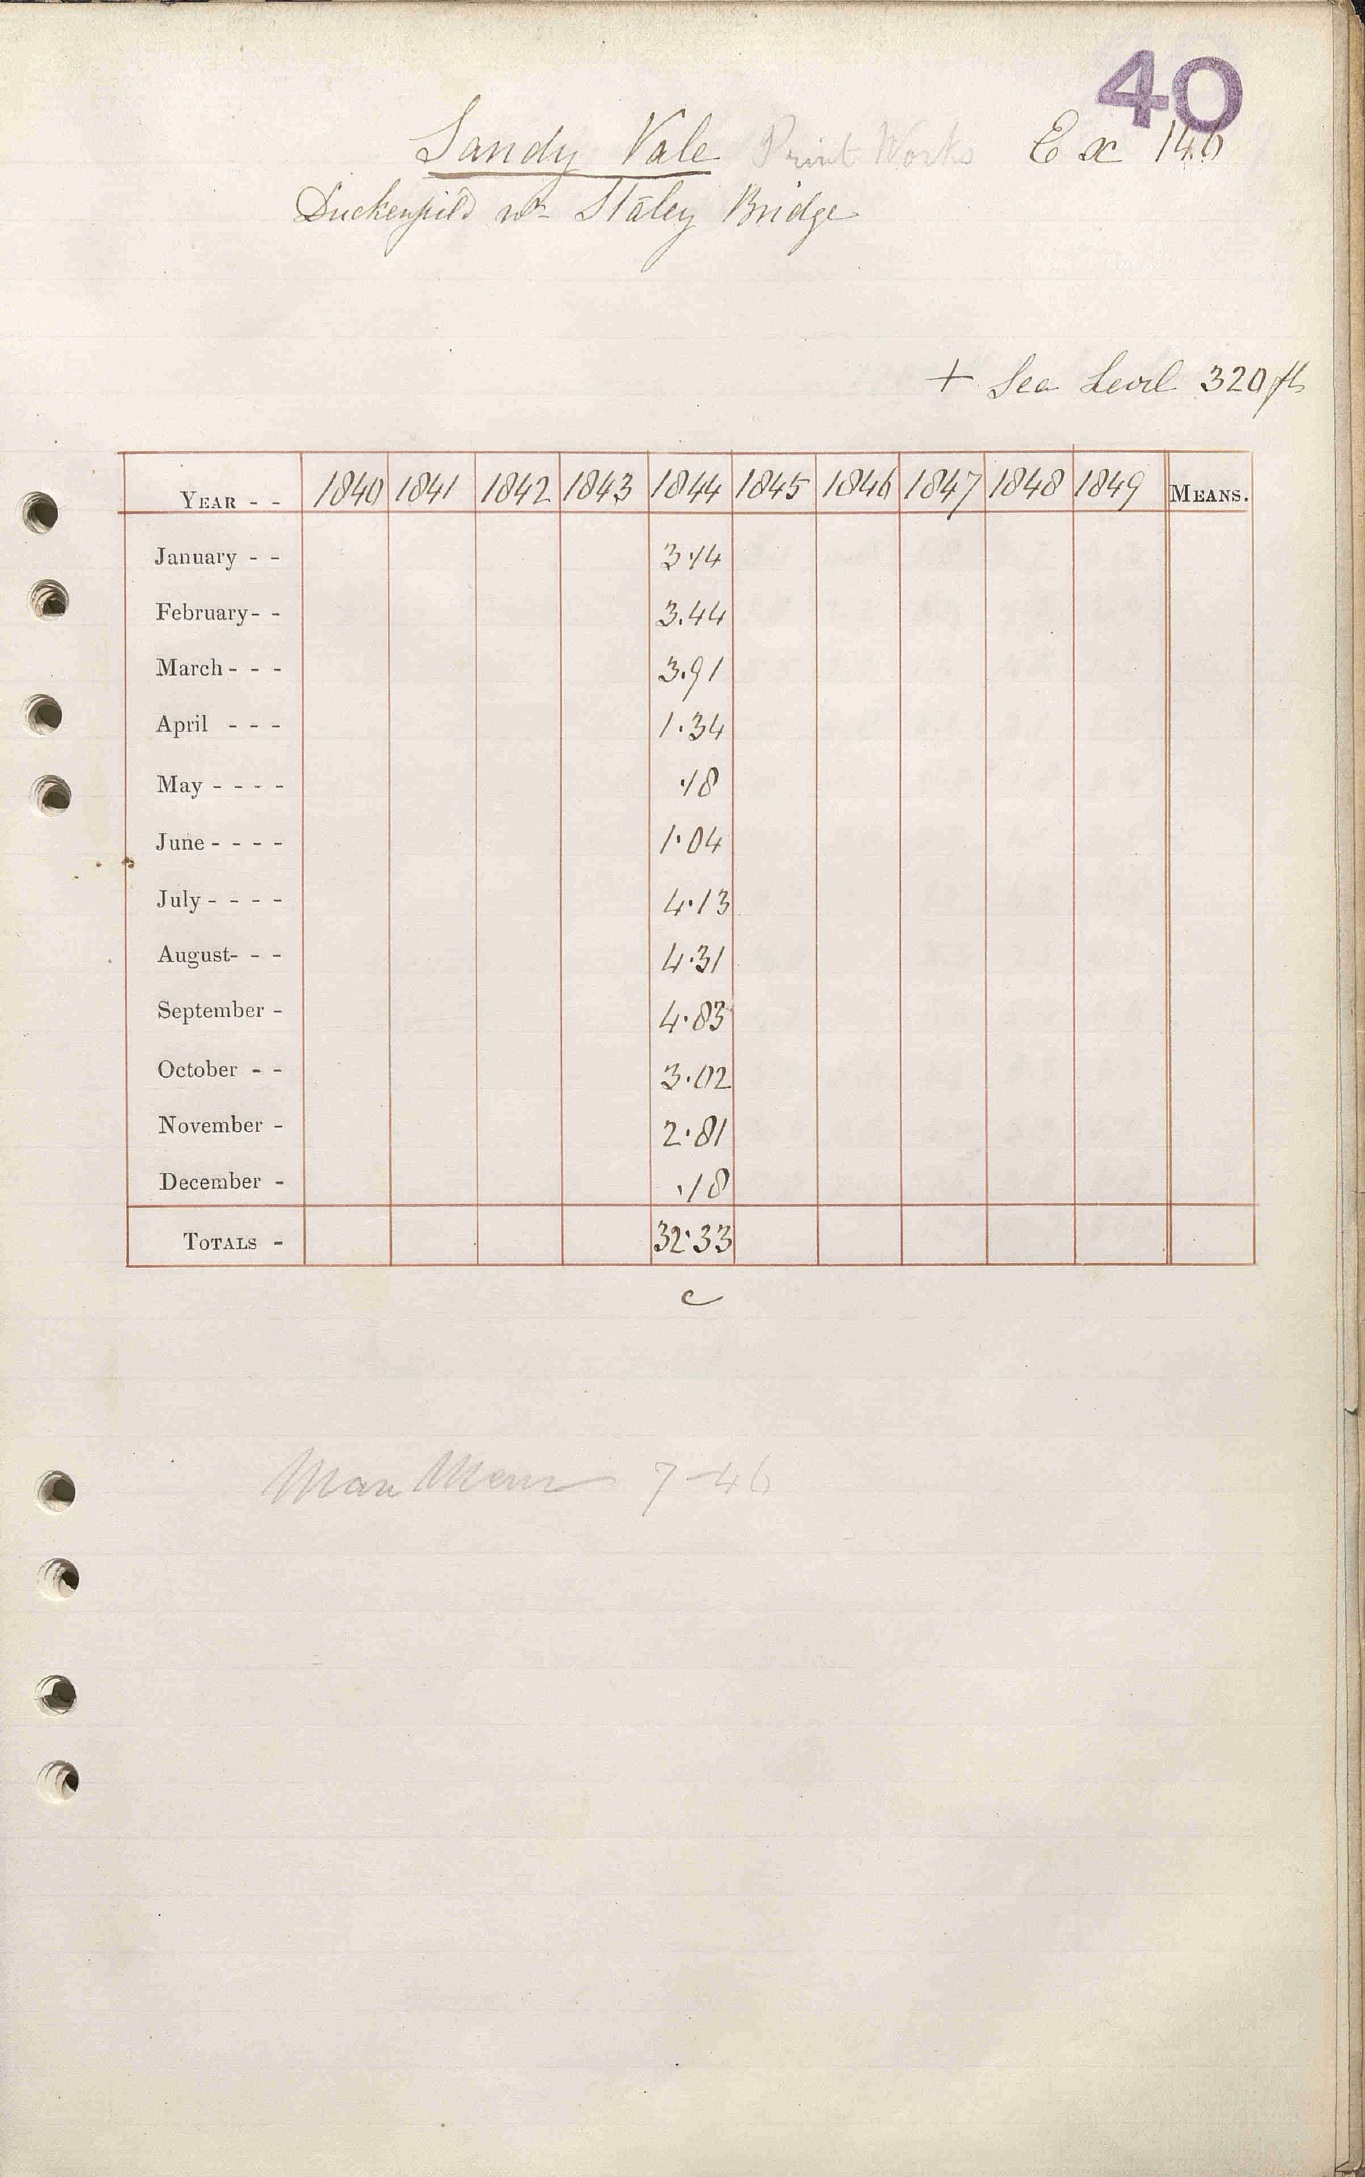 40
Sandy Vale Print Works Ex 146
Duckenfield nr Staley Bridge
+ Sea Level 320 ft
YEAR - - 1840 1841 1842 1843 1844 1845 1846 1847 1848 1849 MEANS.
January - - 3.14
February - - 3.44
March - - - 3.91
April - - - 1.34
May - - - - .18
June - - - - 1.04
July - - - - 4.13
August - - - 4.31
September - 4.83
October - - 3.02
November - 2.81
December - .18
TOTALS - 32.33
c
Man Mem 7-46